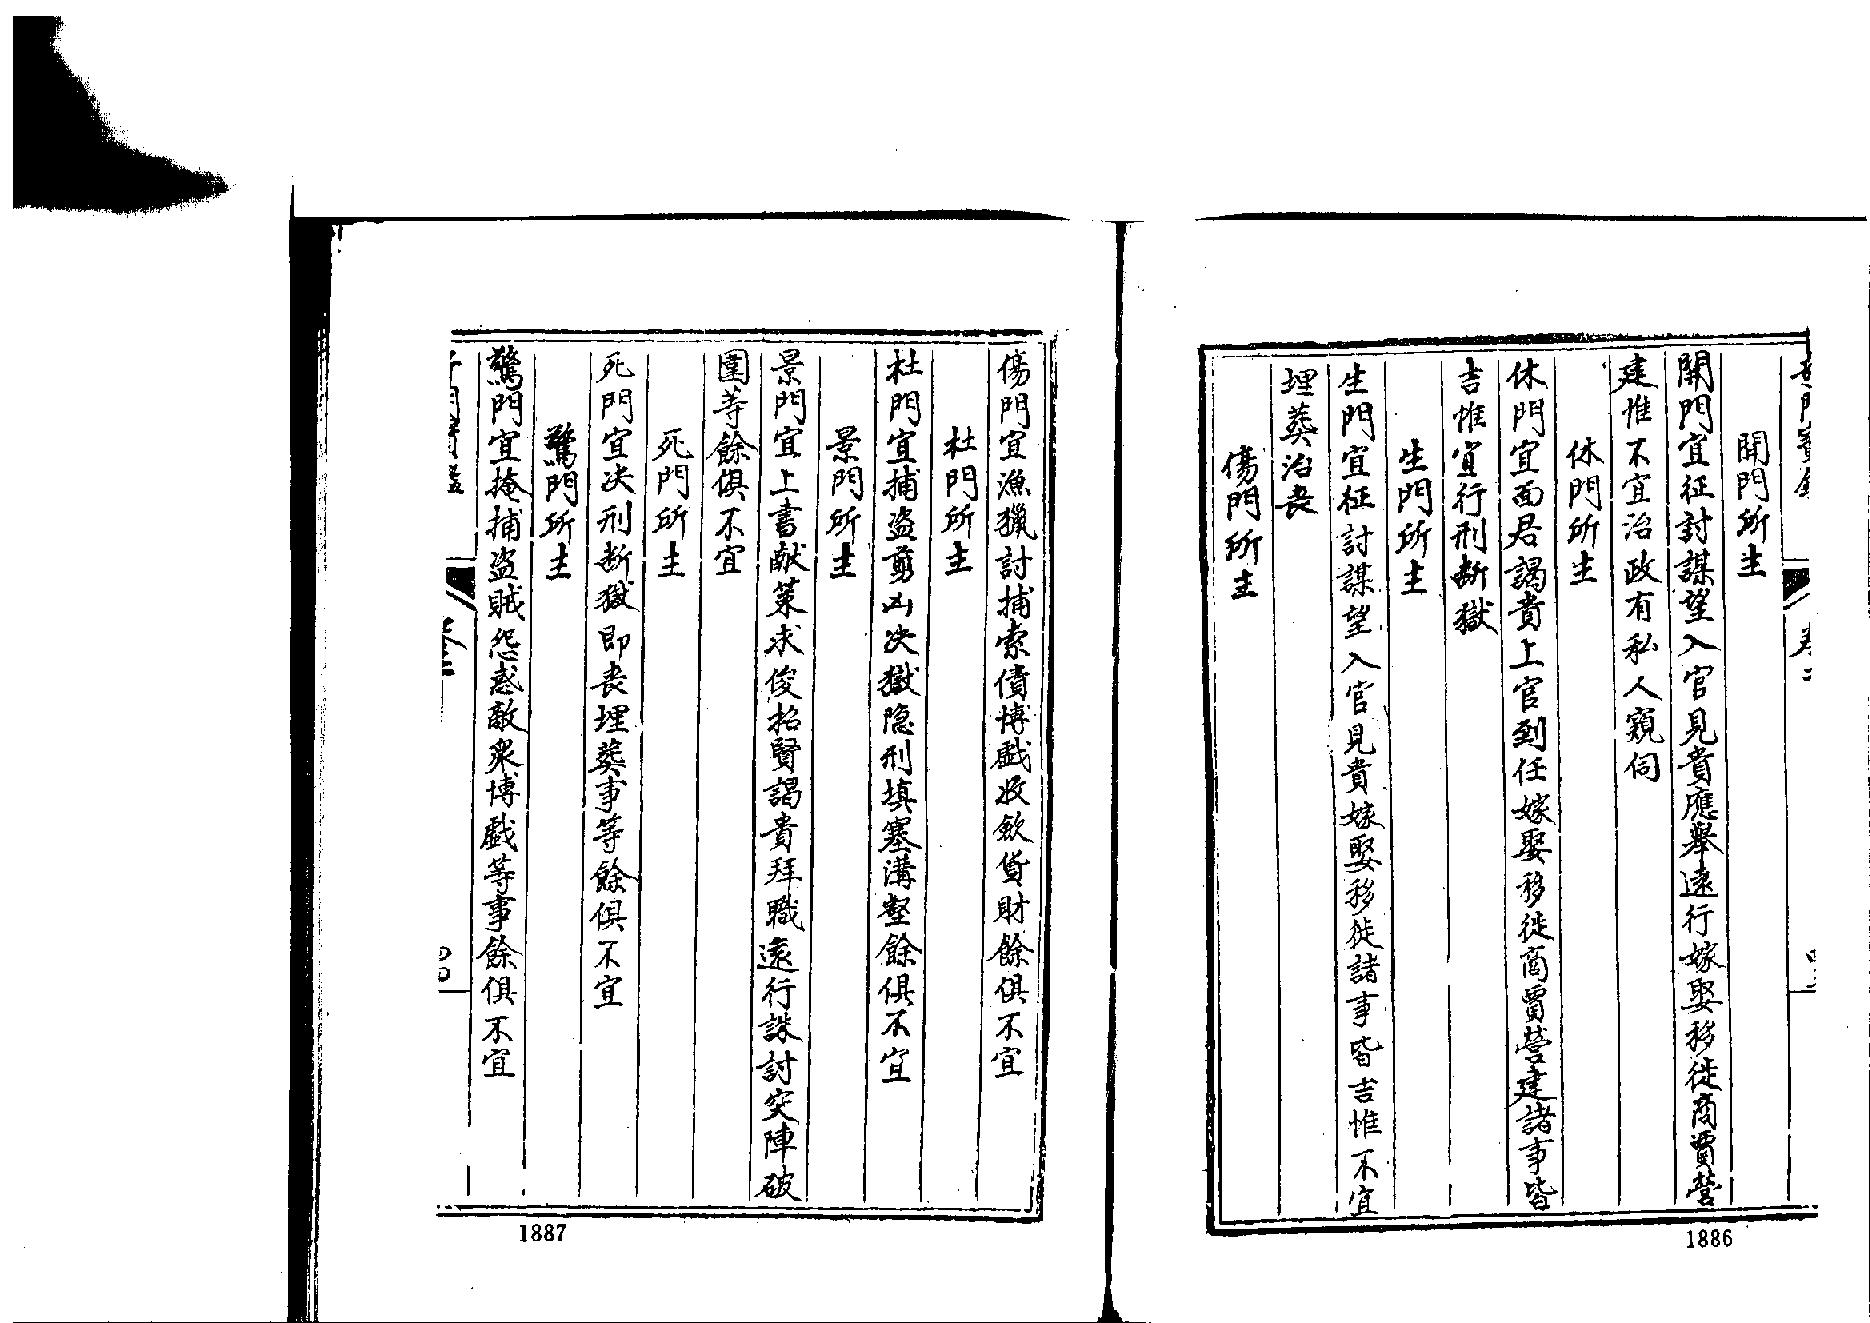 開門所主
開門宜征討謀望入官見貴應舉遠行嫁娶移徙商賈營
建惟不宜治政有私人窺伺
休門所主
休門宜面君謁貴上官到任嫁娶移徙商賈營建諸事皆
吉惟宜行刑斷獄
生門所主
生門宜征討謀望入官見貴嫁娶移徙諸事皆吉惟不宜
埋葬治喪
傷門所主
1886
傷門宜漁獵討捕索債博戱收斂貨財餘俱不宜
杜門所主
杜門宜捕盜剪凶决獄隐刑填塞溝壑餘俱不宜
景門所主
景門宜上書献策求俊招賢謁貴拜職遠行誅討突陣破
圍等餘俱不宜
死門所主
死門宜决刑断獄即喪埋葬事等餘俱不宜
驚門所主
驚門宜掩捕盗賊怨惑敵衆博戱等事餘俱不宜
1887